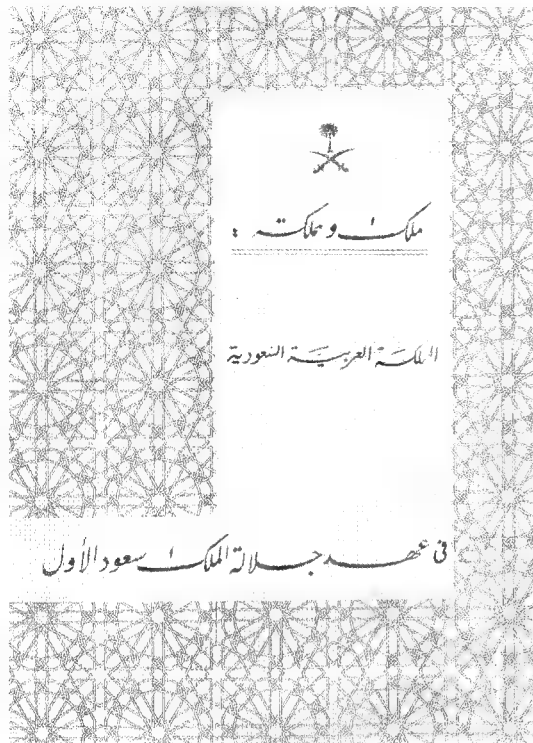 ملك ومملكته :
المملكة العربية السعودية
فى عهد جلالة الملك سعود الأول